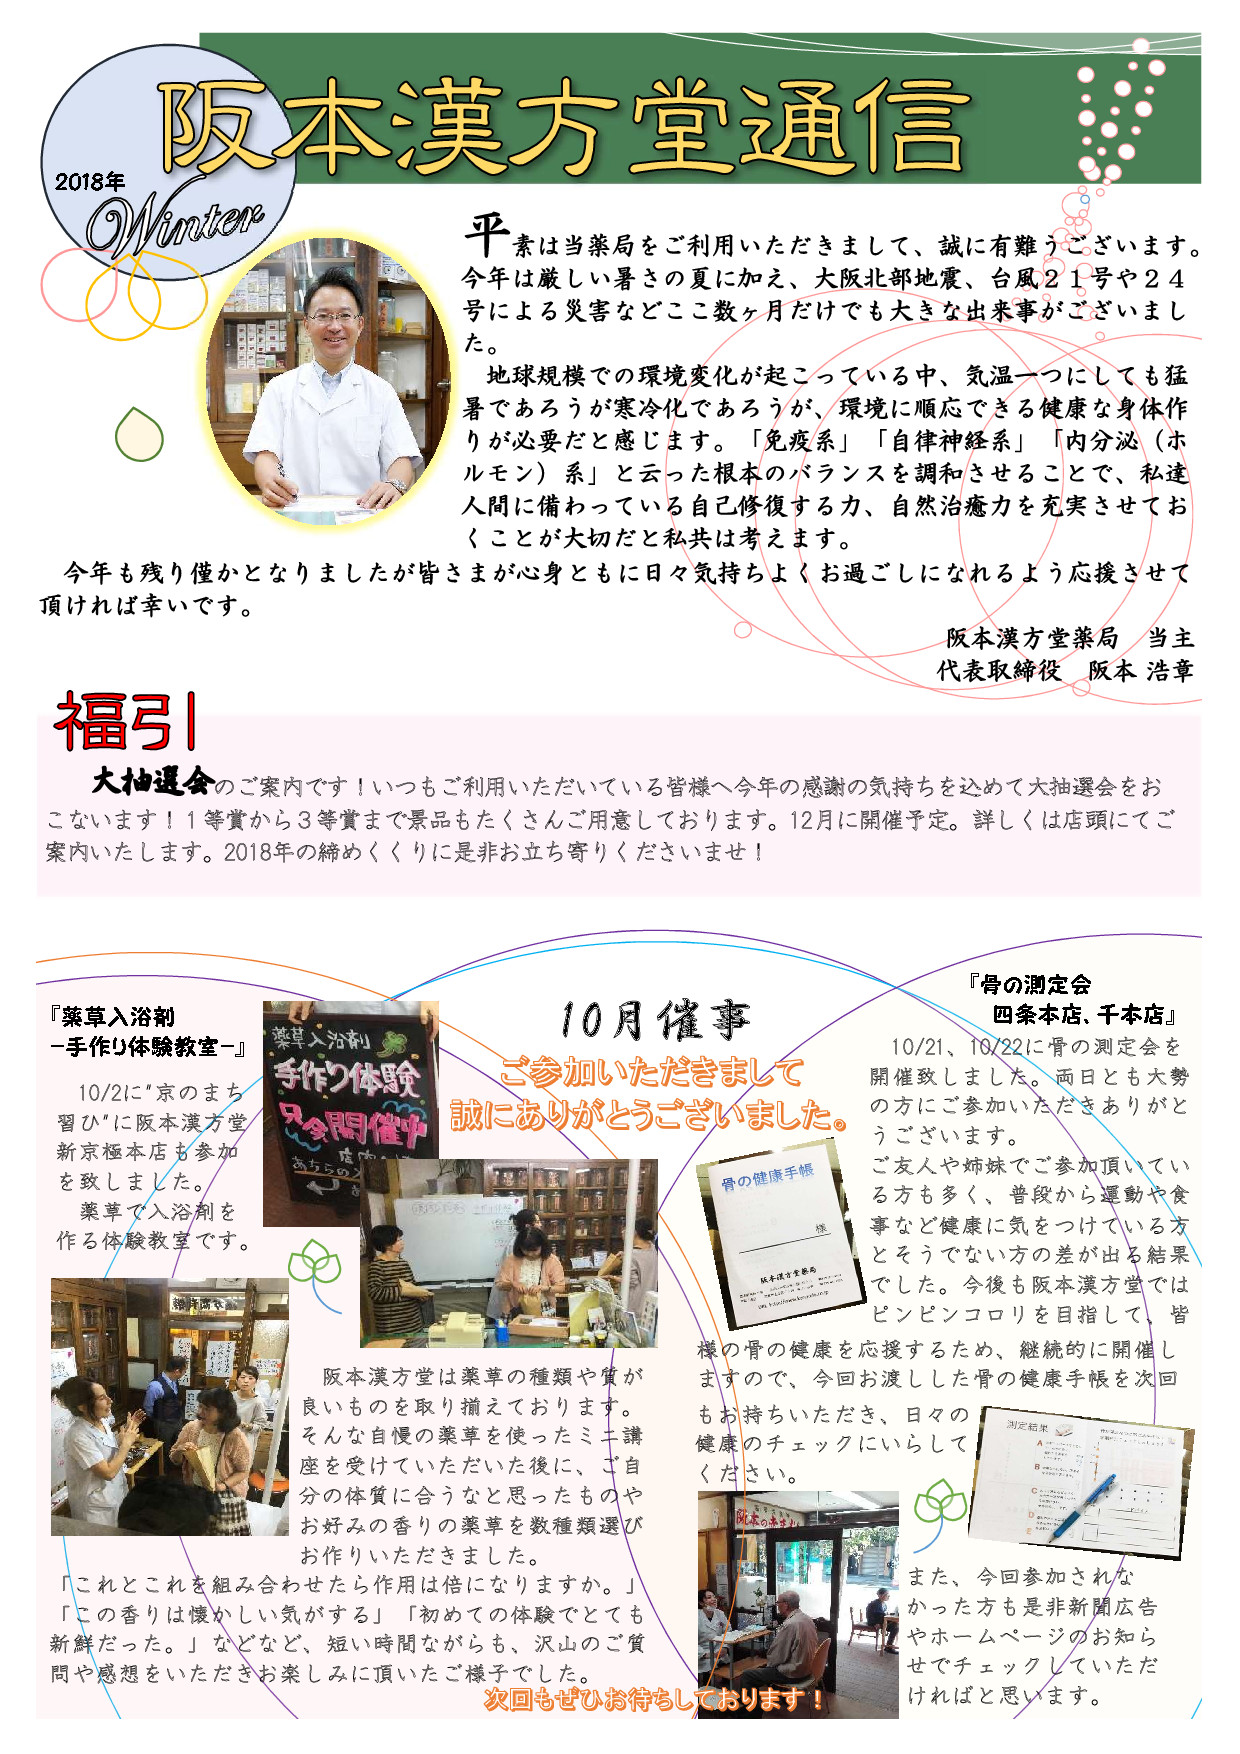 阪本漢方堂通信
2018年
Winter
平素は当薬局をご利用いただきまして、誠に有難うございます。
今年は厳しい暑さの夏に加え、大阪北部地震、台風２１号や２４
号による災害などここ数ヶ月だけでも大きな出来事がございまし
た。
地球規模での環境変化が起こっている中、気温一つにしても猛
暑であろうが寒冷化であろうが、環境に順応できる健康な身体作
りが必要だと感じます。「免疫系」「自律神経系」「内分泌（ホ
ルモン）系」と云った根本のバランスを調和させることで、私達
人間に備わっている自己修復する力、自然治癒力を充実させてお
くことが大切だと私共は考えます。
今年も残り僅かとなりましたが皆さまが心身ともに日々気持ちよくお過ごしになれるよう応援させて
頂ければ幸いです。
阪本漢方堂薬局　当主
代表取締役　阪本 浩章
福引
大抽選会のご案内です！いつもご利用いただいている皆様へ今年の感謝の気持ちを込めて大抽選会をお
こないます！１等賞から３等賞まで景品もたくさんご用意しております。12月に開催予定。詳しくは店頭にてご
案内いたします。2018年の締めくくりに是非お立ち寄りくださいませ！
10月催事
ご参加いただきまして
誠にありがとうございました。
『薬草入浴剤
－手作り体験教室－』
10/2に"京のまち
習ひ"に阪本漢方堂
新京極本店も参加
を致しました。
薬草で入浴剤を
作る体験教室です。
薬草入浴剤
手作り体験
只今開催中
阪本漢方堂は薬草の種類や質が
良いものを取り揃えております。
そんな自慢の薬草を使ったミニ講
座を受けていただいた後に、ご自
分の体質に合うなと思ったものや
お好みの香りの薬草を数種類選び
お作りいただきました。
「これとこれを組み合わせたら作用は倍になりますか。」
「この香りは懐かしい気がする」「初めての体験でとても
新鮮だった。」などなど、短い時間ながらも、沢山のご質
問や感想をいただきお楽しみに頂いたご様子でした。
『骨の測定会
四条本店、千本店』
10/21、10/22に骨の測定会を
開催致しました。両日とも大勢
の方にご参加いただきありがと
うございます。
ご友人や姉妹でご参加頂いてい
る方も多く、普段から運動や食
事など健康に気をつけている方
とそうでない方の差が出る結果
でした。今後も阪本漢方堂では
ピンピンコロリを目指して、皆
様の骨の健康を応援するため、継続的に開催し
ますので、今回お渡しした骨の健康手帳を次回
もお持ちいただき、日々の
健康のチェックにいらして
ください。
骨の健康手帳
様
阪本漢方堂薬局
測定結果
A
B
C
D
E
また、今回参加されな
かった方も是非新聞広告
やホームページのお知ら
せでチェックしていただ
ければと思います。
次回もぜひお待ちしております！